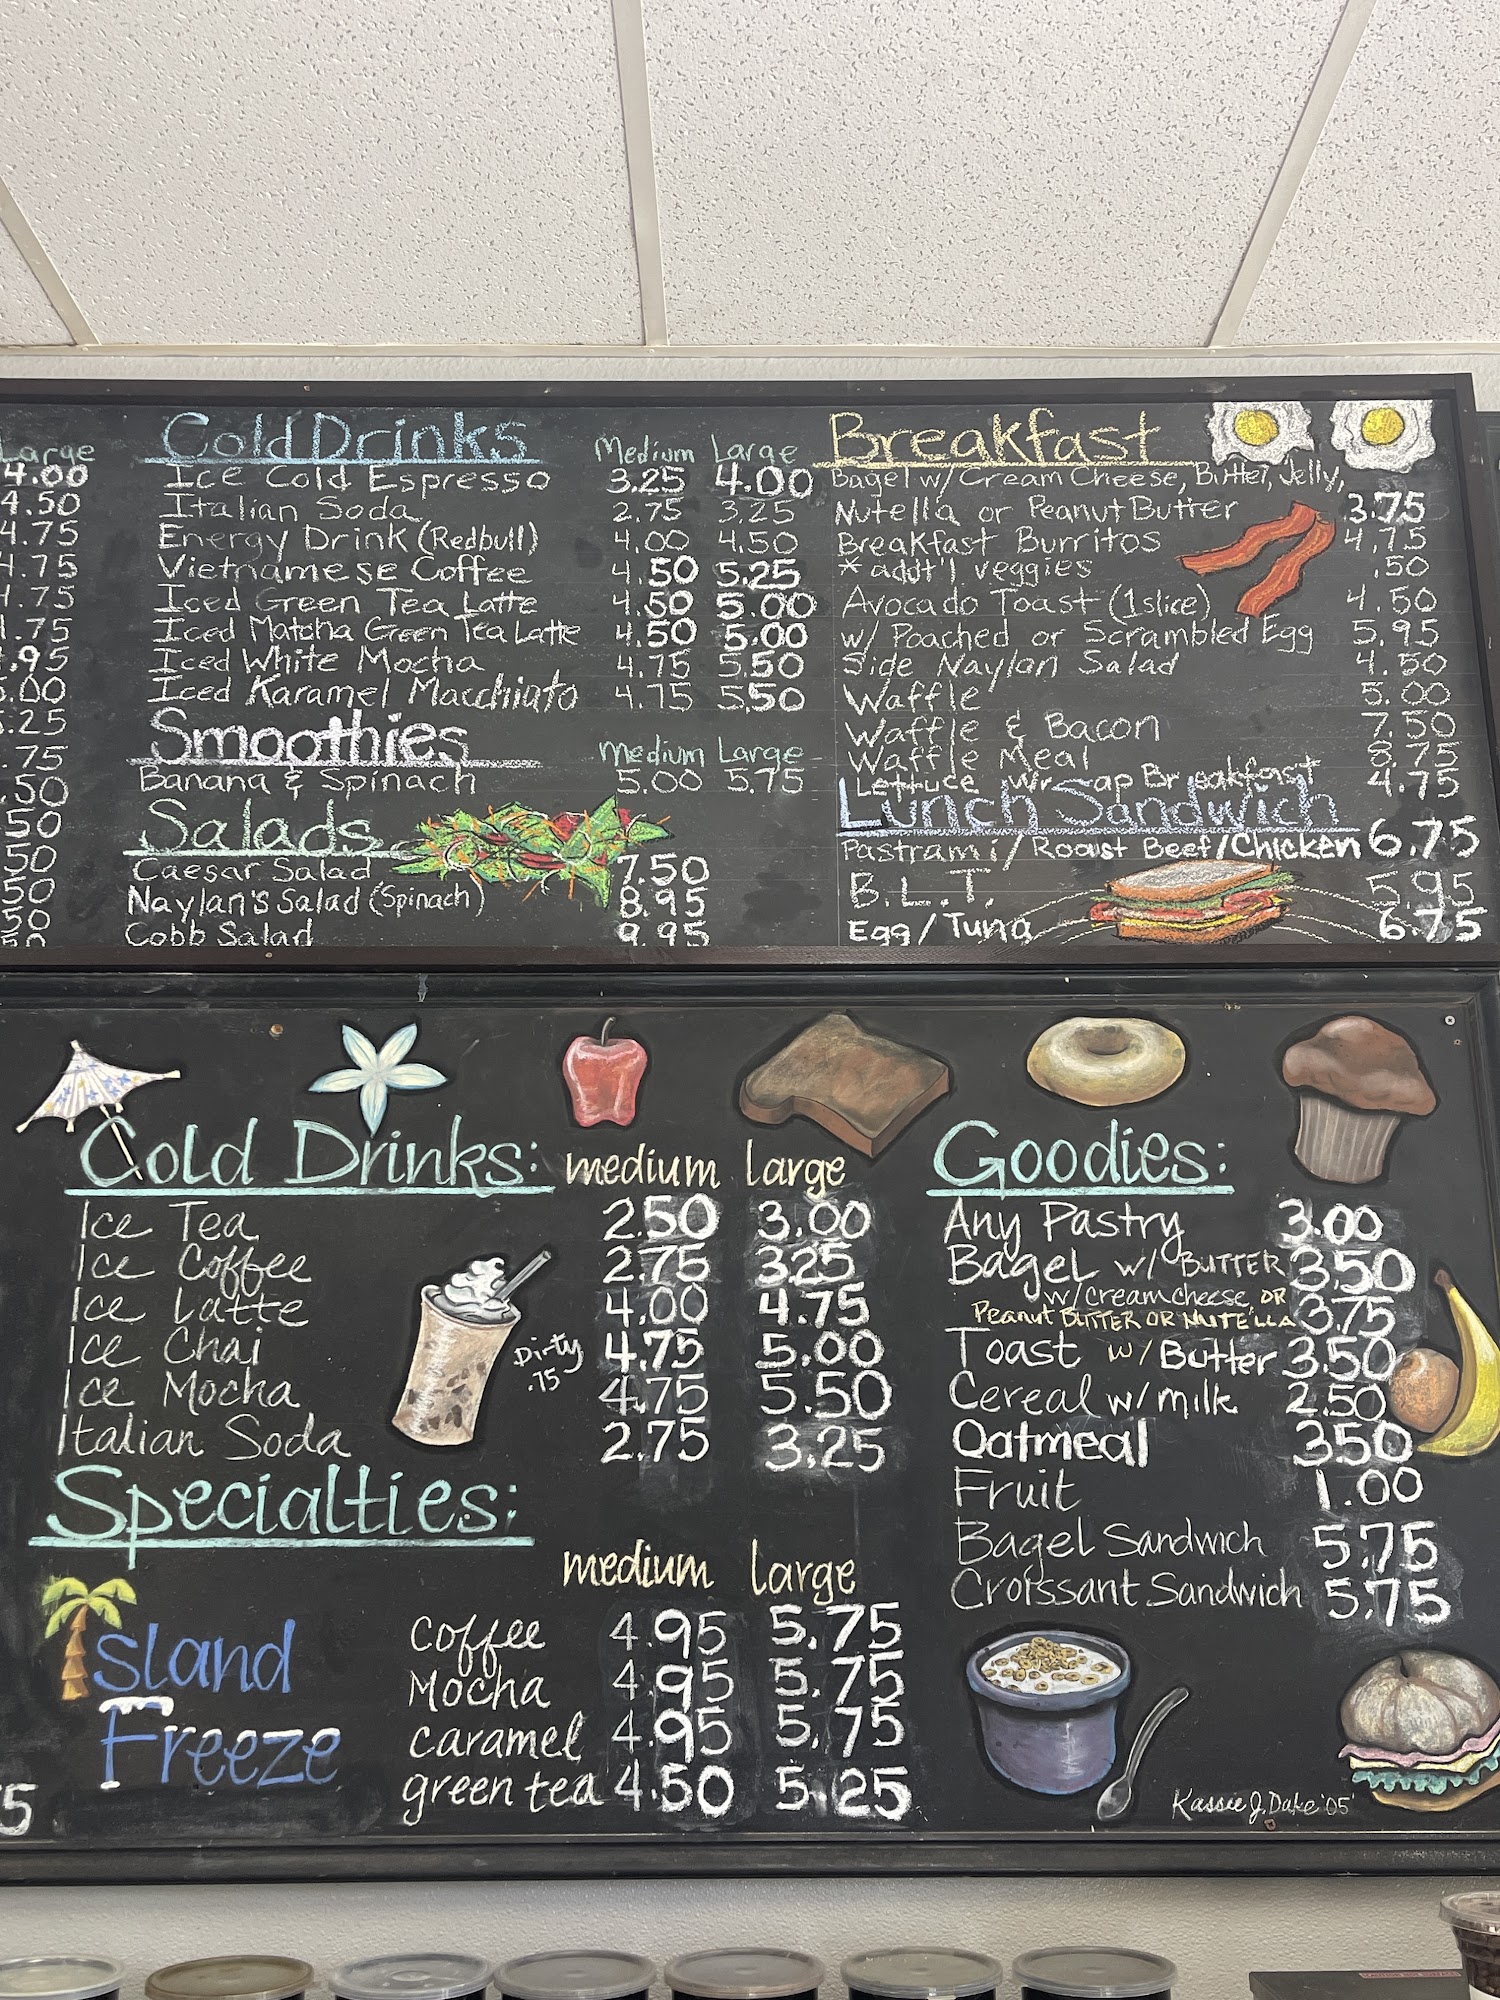 Large
4.00
4.50
4.75
4.75
4.75
.75
.95
.00
.25
.75
.50
50
50
50
50
50
Cold Drinks Medium Large
Ice Cold Espresso 3.25 4.00
Italian Soda 2.75 3.25
Energy Drink (Redbull) 4.00 4.50
Vietnamese Coffee 4.50 5.25
Iced Green Tea Latte 4.50 5.00
Iced Matcha Green Tea Latte 4.50 5.00
Iced White Mocha 4.75 5.50
Iced Karamel Macchiato 4.75 5.50
Smoothies Medium Large
Banana & Spinach 5.00 5.75
Salads
Caesar Salad 7.50
Naylan's Salad (Spinach) 8.95
Cobb Salad 9.95
Breakfast
Bagel w/ Cream Cheese, Butter, Jelly,
Nutella or Peanut Butter 3.75
Breakfast Burritos 4.75
* addt'l veggies .50
Avocado Toast (1 slice) 4.50
w/ Poached or Scrambled Egg 5.95
Side Naylan Salad 4.50
Waffle 5.00
Waffle & Bacon 7.50
Waffle Meal 8.75
Lettuce Wrap Breakfast 4.75
Lunch Sandwich
Pastrami/Roast Beef/Chicken 6.75
B.L.T. 5.95
Egg/Tuna 6.75
Cold Drinks: medium large
Ice Tea 2.50 3.00
Ice Coffee 2.75 3.25
Ice Latte 4.00 4.75
Ice Chai Dirty .75 4.75 5.00
Ice Mocha 4.75 5.50
Italian Soda 2.75 3.25
Specialties:
medium large
Island Freeze
Coffee 4.95 5.75
Mocha 4.95 5.75
caramel 4.95 5.75
green tea 4.50 5.25
5
Goodies:
Any Pastry 3.00
Bagel w/ BUTTER 3.50
w/ creamcheese, OR
Peanut BUTTER OR NUTELLA 3.75
Toast w/ Butter 3.50
Cereal w/ milk 2.50
Oatmeal 3.50
Fruit 1.00
Bagel Sandwich 5.75
Croissant Sandwich 5.75
Kassie J. Dake '05'